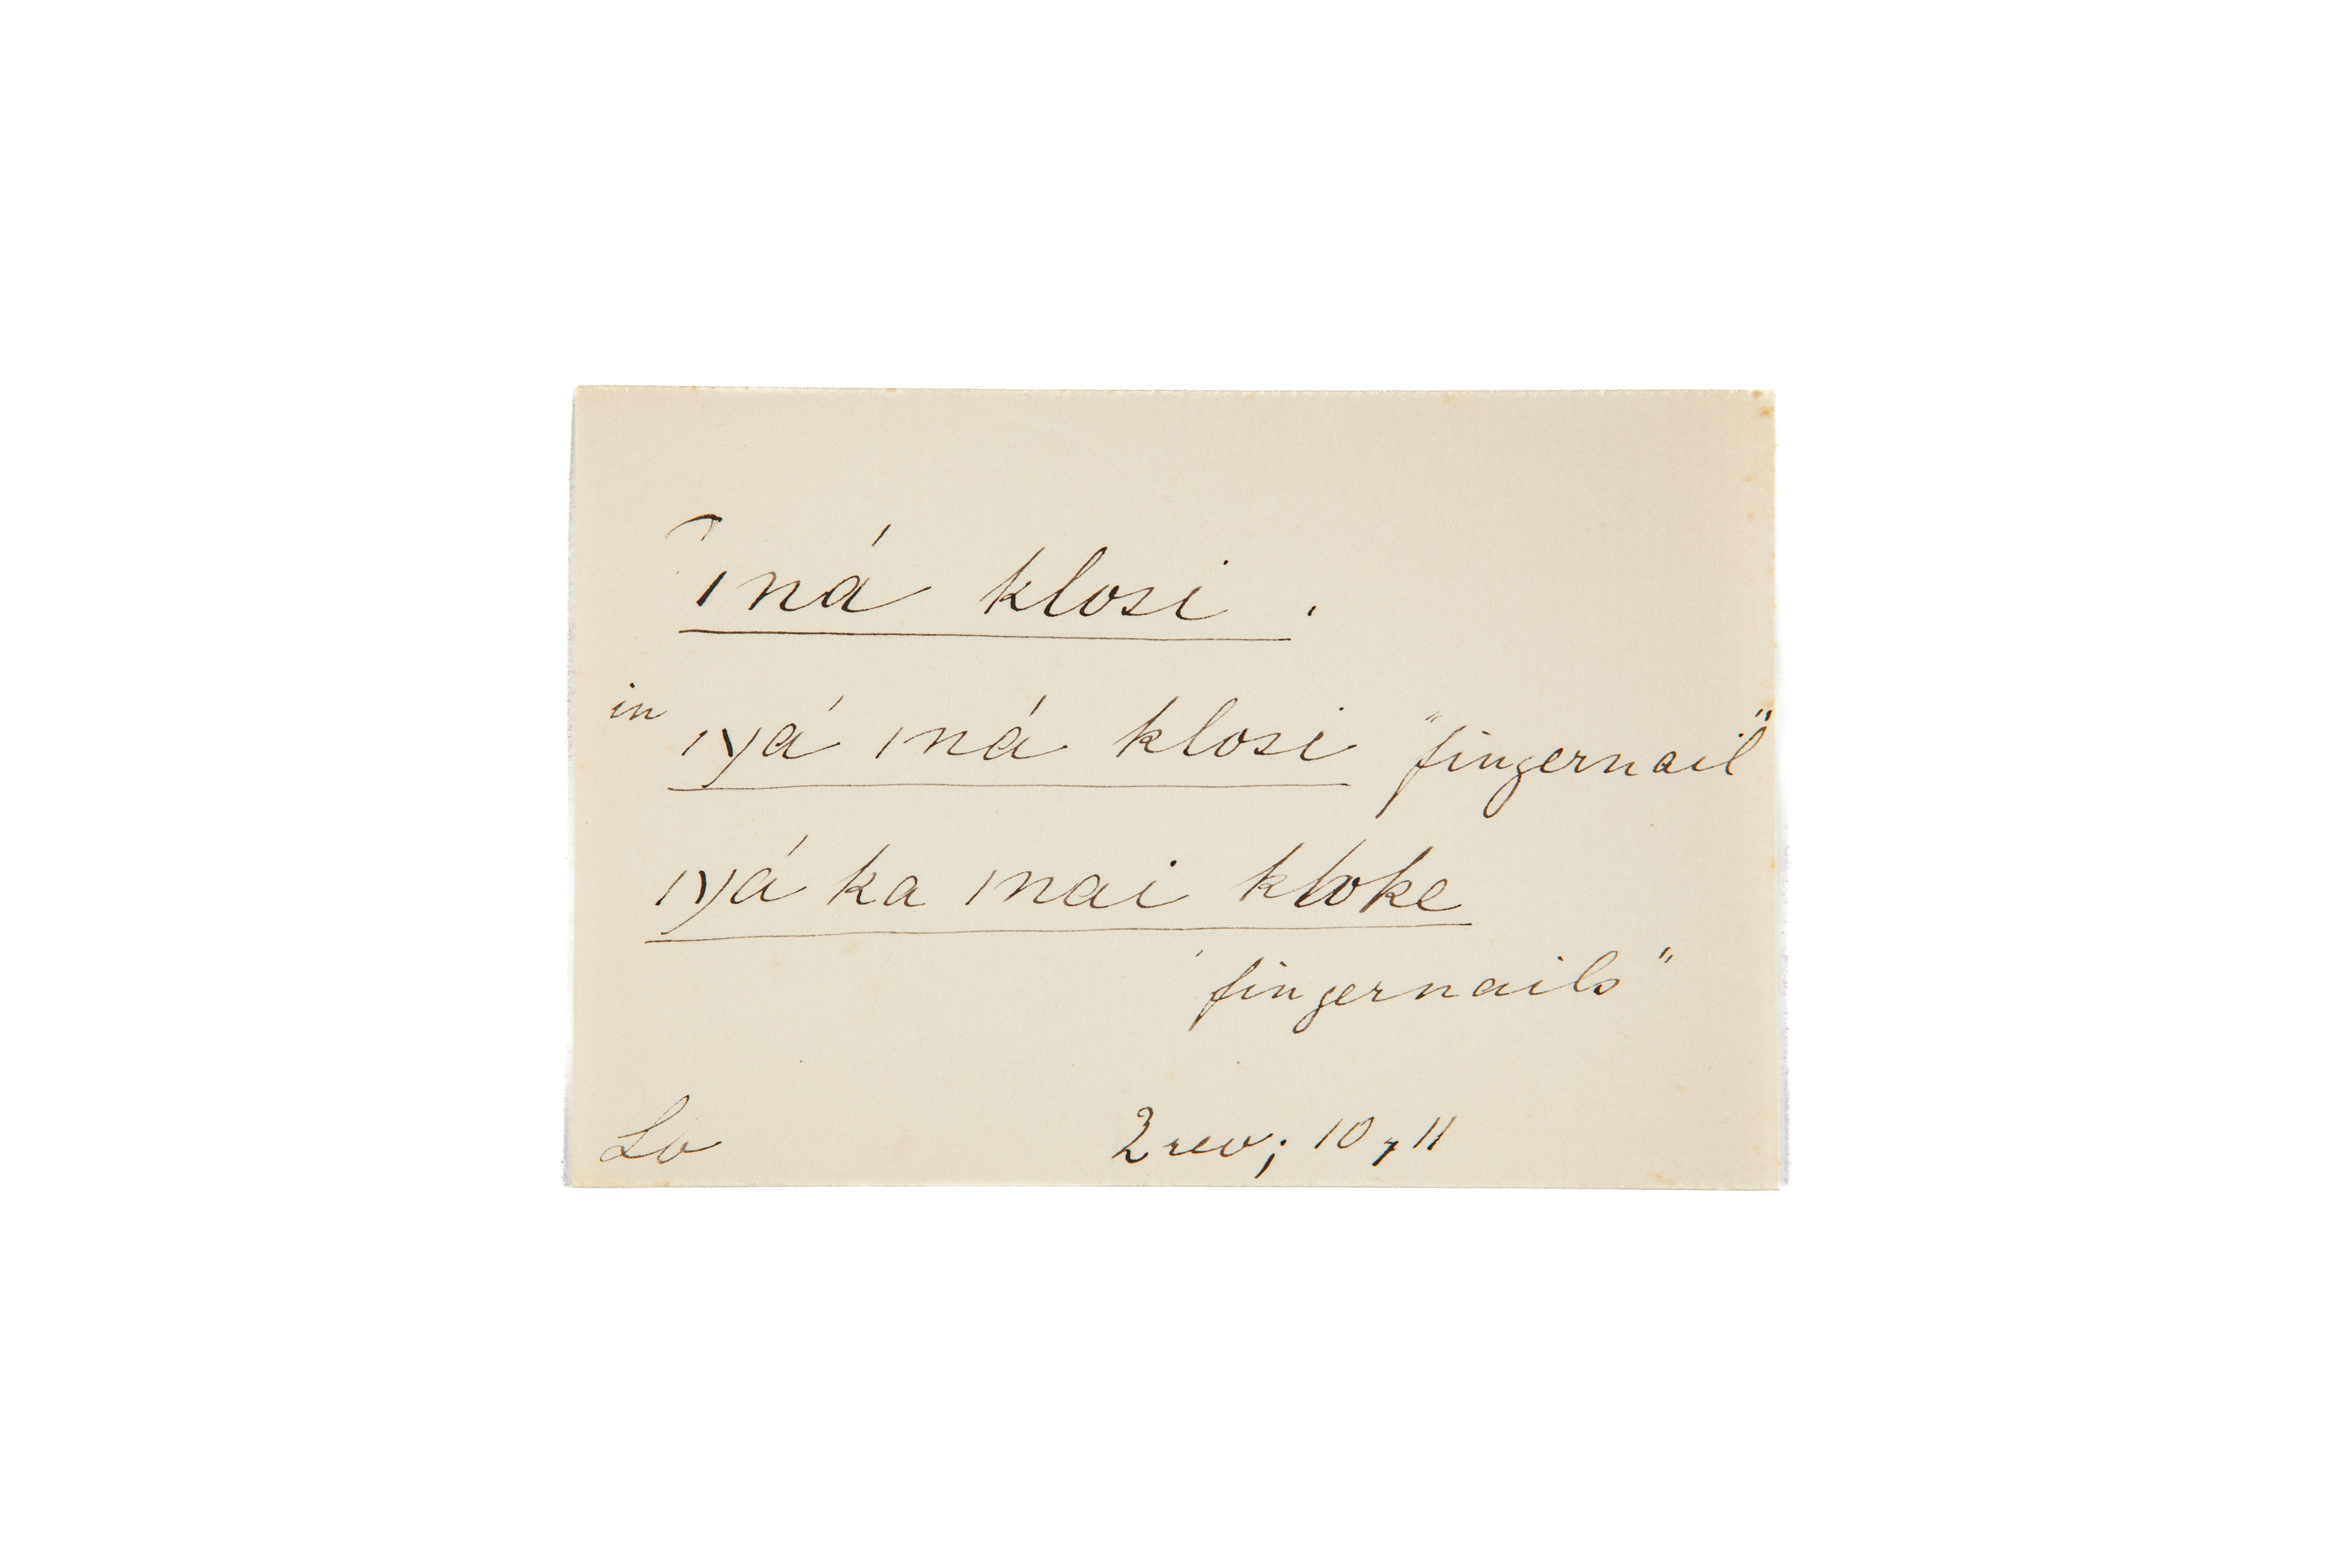 ǀná klosi .
in ǀyá ǀná klosi "fingernail"
ǀyá ka ǀnai kloke
"fingernails"
Lo 2 rev; 10, 11